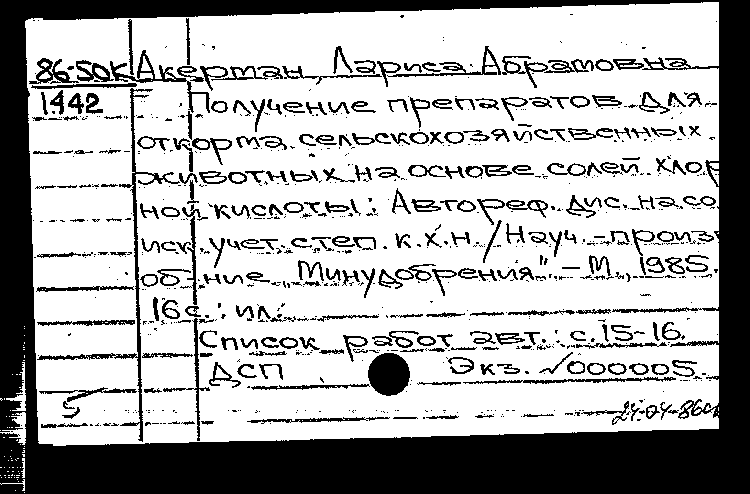 86-50К Акерман, Лариса Абрамовна
1442 Получение препаратов для
откорма сельскохозяйственных
животных на основе солей хлор
ной кислоты: Автореф. дис. на со
иск. учет. степ. к.х.н. / Науч.-произв
об-ние „Минудобрения". - М., 1985.
16 с.: ил.
Список работ авт.: с. 15-16.
ДСП Экз. √000005.
5
24.04.86